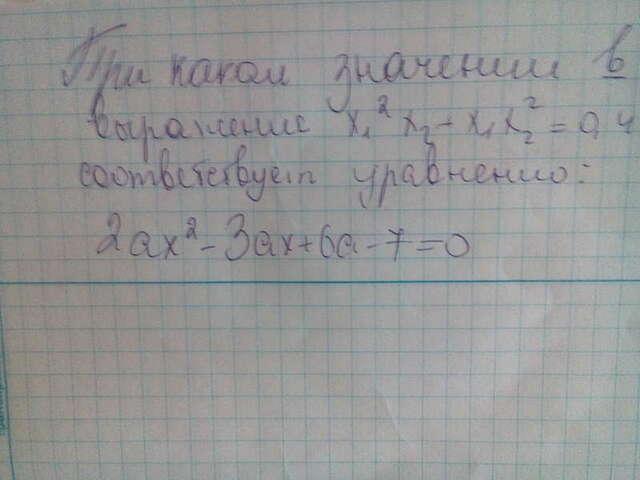 При каком значении в
выражение x₁²x₂ - x₁x₂² = 0,4
соответствует уравнению:
2ax² - 3ax + 6a - 7 = 0